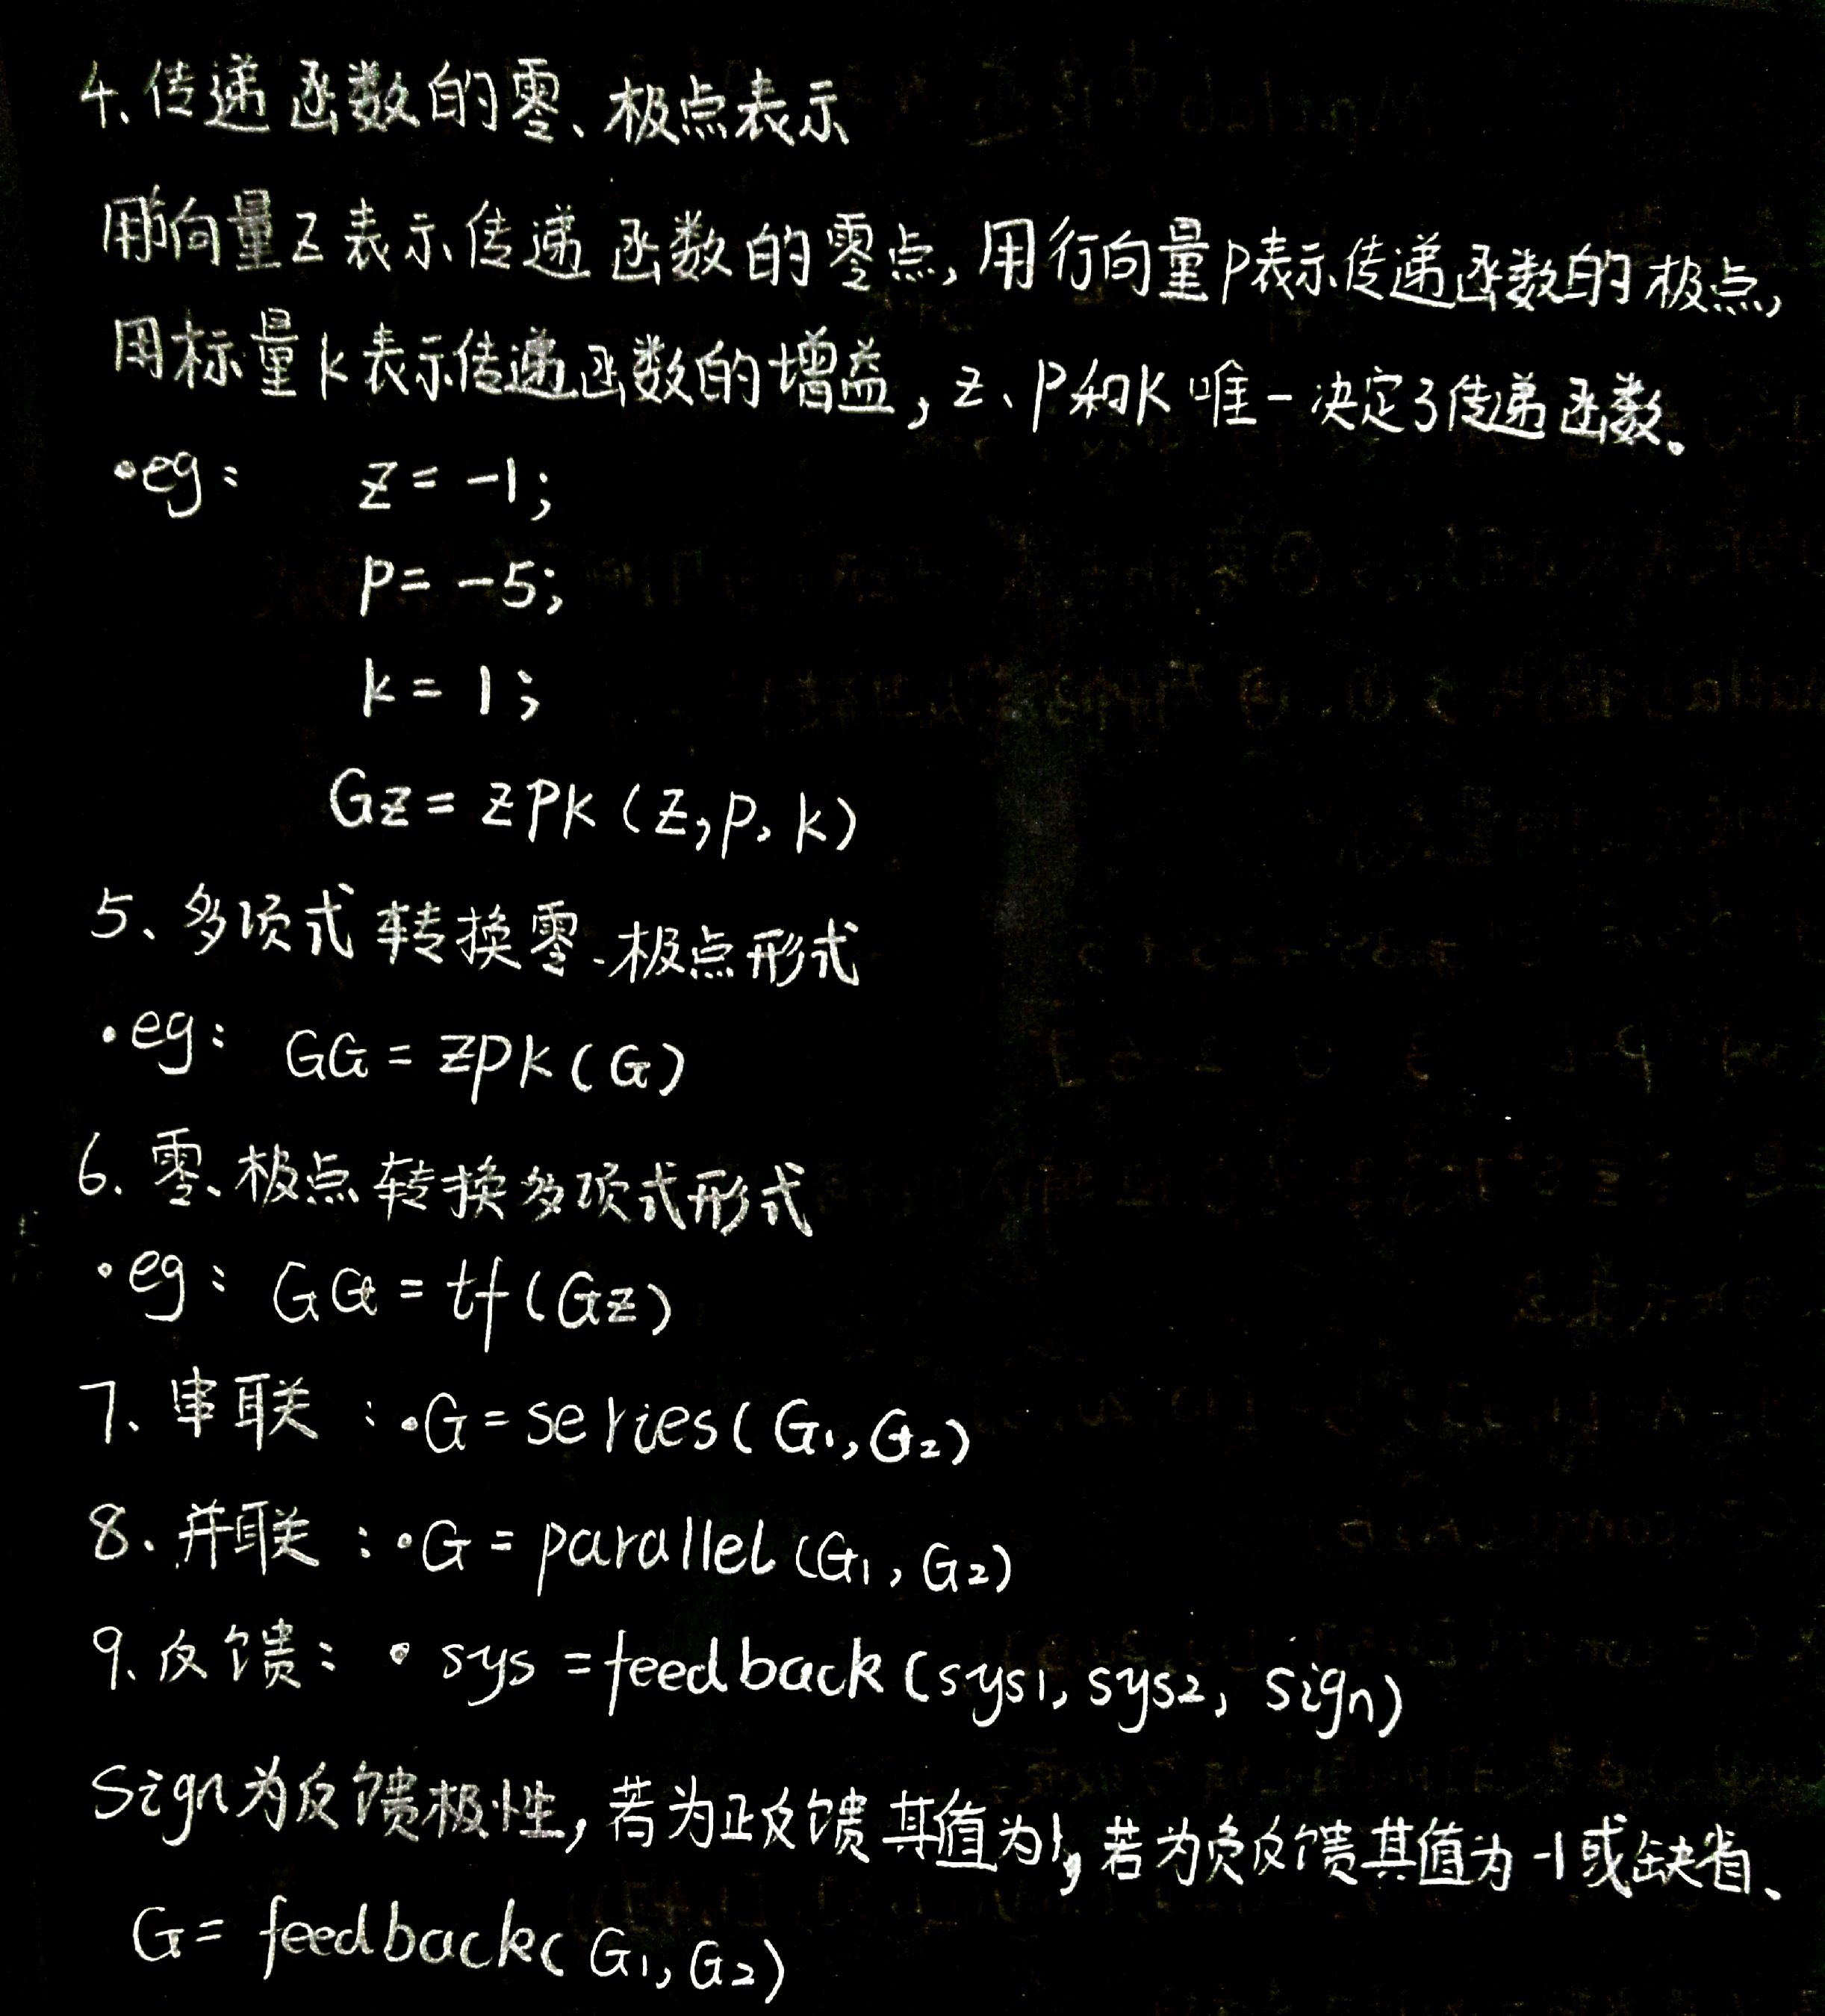 4、传递函数的零、极点表示
用行向量z表示传递函数的零点,用行向量p表示传递函数的极点,
用标量k表示传递函数的增益,z、p和k唯一决定了传递函数。
•eg: z=-1;
p=-5;
k=1;
Gz=zpk(z,p,k)
5、多项式转换零、极点形式
•eg: GG=zpk(G)
6、零、极点转换多项式形式
•eg: GGt=tf(Gz)
7、串联:•G=series(G1,G2)
8、并联:•G=parallel(G1,G2)
9、反馈:• sys=feedback(sys1,sys2,sign)
Sign为反馈极性,若为正反馈其值为1,若为负反馈其值为-1或缺省、
G=feedback(G1,G2)